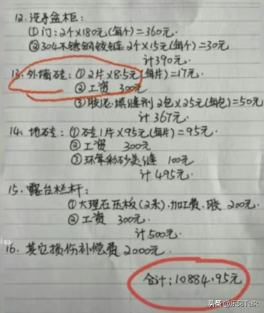 12. 洗手盆柜:
①门: 2个×180元(每个)=360元
②304不锈钢铰链 2个×15元(每个)=30元
计390元.
13. 外墙砖: ①2片×8.5元(每片)=17元
②工资 300元
③胶泥.填缝剂 2包×25元(每包)=50元
计367元.
14. 地砖: ①砖1片×95元(每片)=95元
②工资 300元
③环氧彩砂美缝 100元
计495元.
15. 露台栏杆:
①大理石压板(2条).加工费.胶 200元
②工资 300元
计500元.
16. 其它损伤补偿费 2000元.
合计: 10884.95元